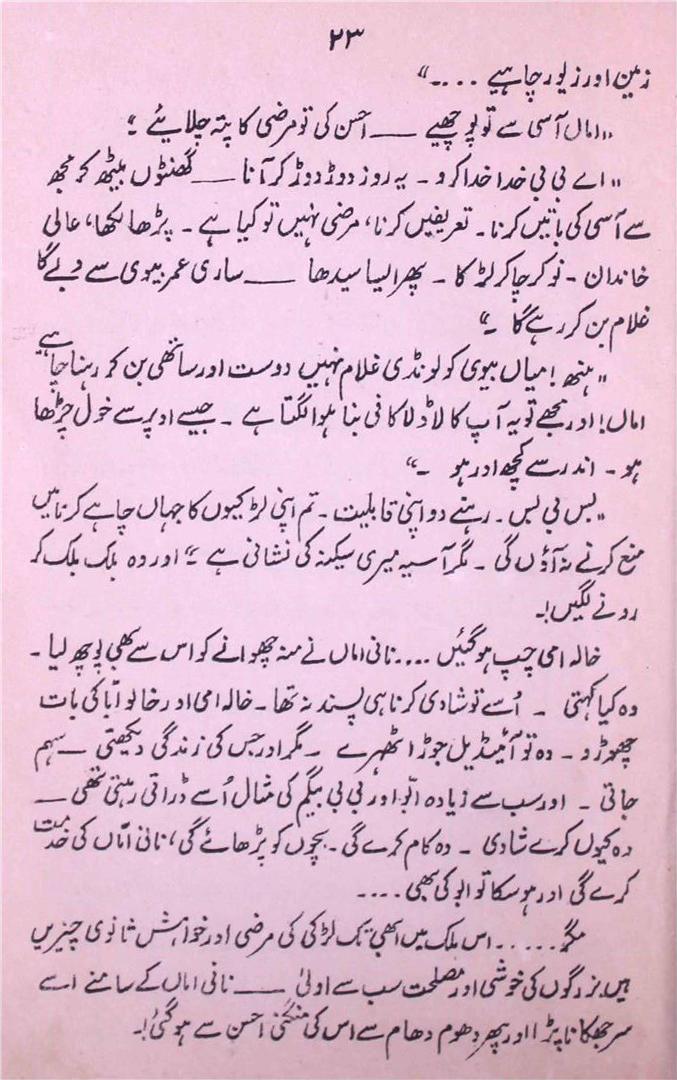 ۲۳
زمین اور زیور چاہیے ....۔“
”اماں آسی سے تو پوچھیے ــــ احسن کی تو مرضی کا پتہ چلائیے۔“
”اے بی بی خدا خدا کرو۔ یہ روز دوڑ دوڑ کر آنا ــــ گھنٹوں بیٹھ کر مجھ
سے آسی کی باتیں کرنا۔ تعریفیں کرنا، مرضی نہیں تو کیا ہے۔ پڑھا لکھا، عالی
خاندان۔ نوکر چاکر لڑکا۔ پھر ایسا سیدھا ــــ ساری عمر بیوی سے دبے گا
غلام بن کر رہے گا۔“
”ہنھ! میاں بیوی کو لونڈی غلام نہیں دوست اور ساتھی بن کر رہنا چاہیے
اماں! اور مجھے تو یہ آپ کا لاڈلا کافی بنا ہوا لگتا ہے۔ جیسے اوپر سے خول چڑھا
ہو۔ اندر سے کچھ اور ہو۔“
”بس بی بس۔ رہنے دو اپنی قابلیت۔ تم اپنی لڑکیوں کا جہاں چاہے کرنا میں
منع کرنے نہ آؤں گی۔ مگر آسیہ میری سکینہ کی نشانی ہے۔“ اور وہ بلک بلک کر
رونے لگیں!۔
خالہ امی چپ ہو گئیں .... نانی اماں نے منہ چھوانے کو اس سے بھی پوچھ لیا۔
وہ کیا کہتی۔ اُسے تو شادی کرنا ہی پسند نہ تھا۔ خالہ امی اور خالو ابّا کی بات
چھوڑو۔ وہ تو آئیڈیل جوڑا ٹھہرے۔ مگر اور جس کی زندگی دیکھتی ــــ سہم
جاتی۔ اور سب سے زیادہ ابّو اور بی بی بیگم کی مثال اُسے ڈراتی رہتی تھی ــــ
وہ کیوں کرے شادی۔ وہ کام کرے گی۔ بچوں کو پڑھائے گی، نانی امّاں کی خدمت
کرے گی اور ہو سکا تو ابو کی بھی ....
مگر ..... اس ملک میں ابھی تک لڑکی کی مرضی اور خواہش ثانوی چیزیں
ہیں بزرگوں کی خوشی اور مصلحت سب سے اولیٰ ــــ نانی اماں کے سامنے اسے
سر جھکانا پڑا اور پھر دھوم دھام سے اس کی منگنی احسن سے ہو گئی!۔